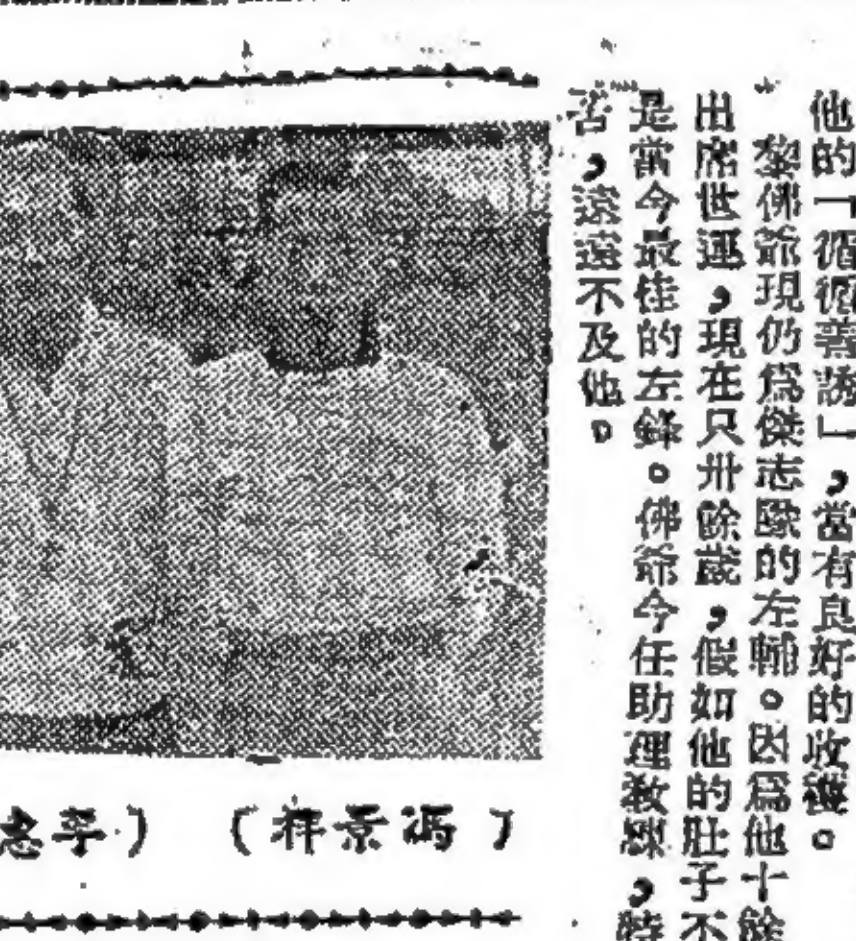 他的「循循善誘」，當有良好的收穫。
黎佛爺現仍爲傑志隊的左輔。因爲他十餘
出席世運，現在只卅餘歲，假如他的肚子不
是當今最佳的左鋒。佛爺今任助理教練，時
苦，遠遠不及他。
（馮景祥）
（李忠